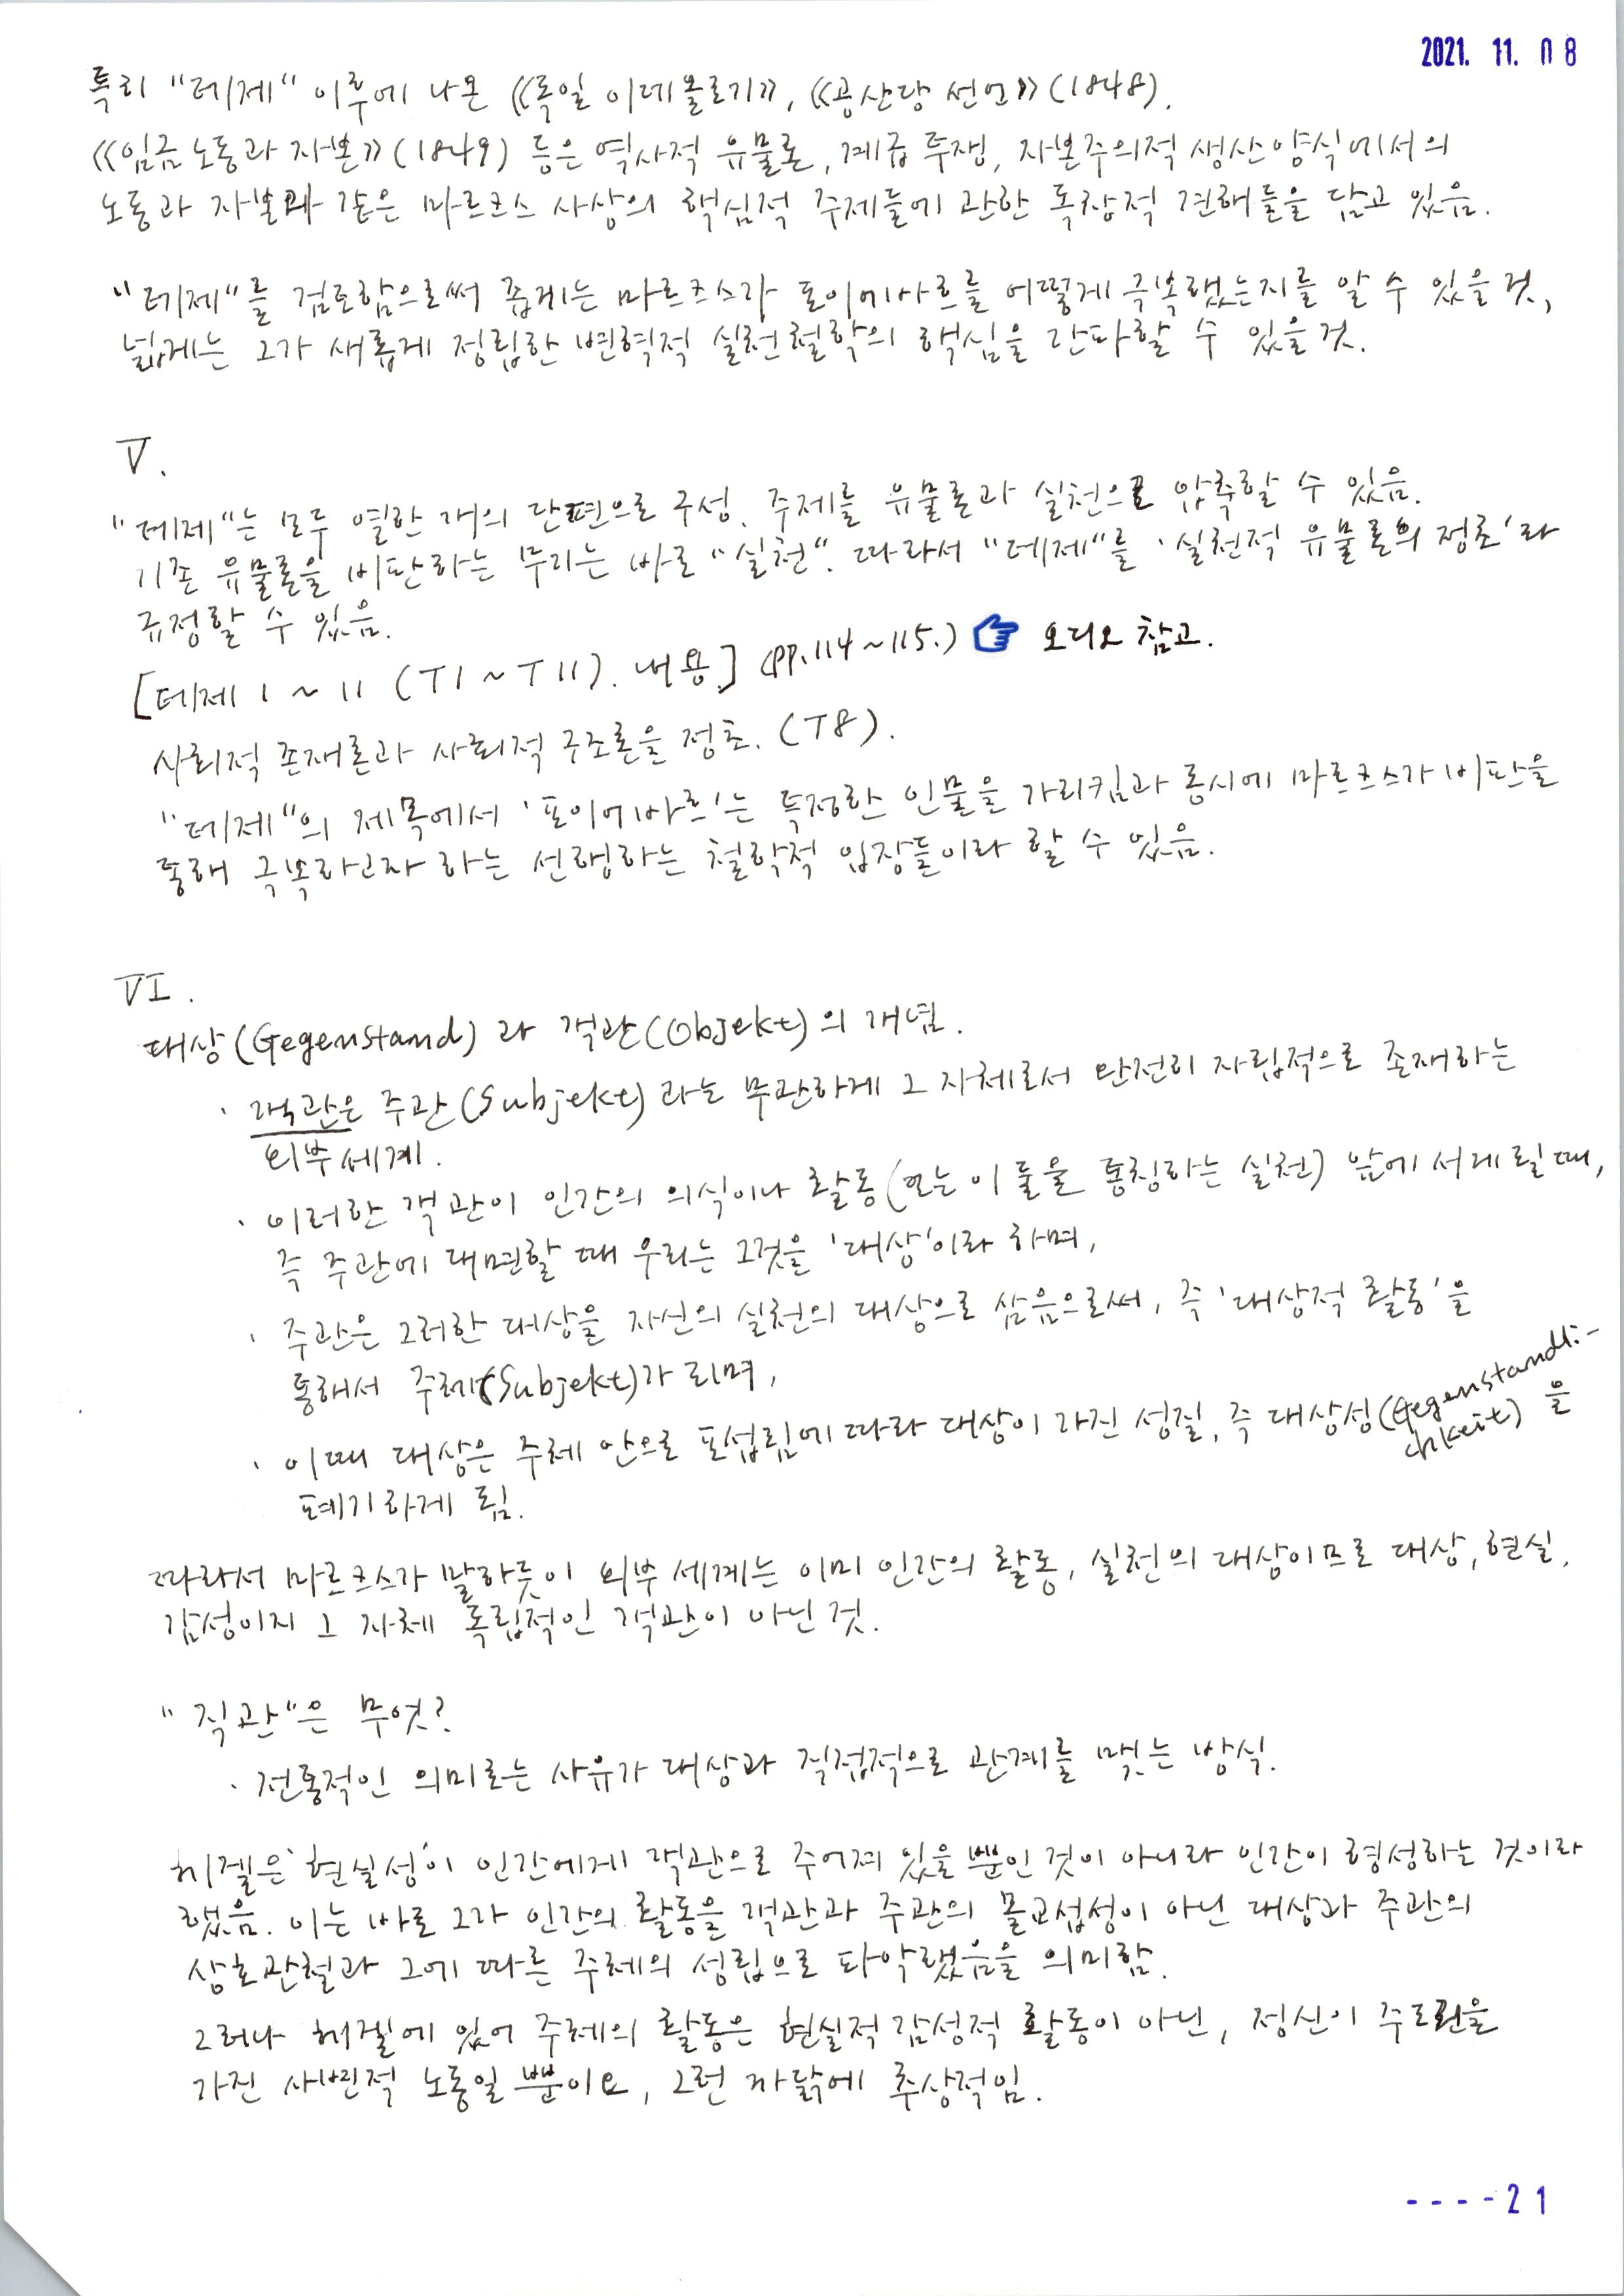 2021. 11. 08
특히 "테제" 이후에 나온 《독일 이데올로기》, 《공산당 선언》(1848).
《임금 노동과 자본》(1849) 등은 역사적 유물론, 계급 투쟁, 자본주의적 생산 양식에서의
노동과 자본과 같은 마르크스 사상의 핵심적 주제들에 관한 독창적 견해들을 담고 있음.
"테제"를 검토함으로써 좁게는 마르크스가 포이에바흐를 어떻게 극복했는지를 알 수 있을 것,
넓게는 그가 새롭게 정립한 변혁적 실천철학의 핵심을 간파할 수 있을 것.
V.
"테제"는 모두 열한 개의 단편으로 구성. 주제를 유물론과 실천으로 압축할 수 있음.
기존 유물론을 비판하는 무기는 바로 "실천". 따라서 "테제"를 '실천적 유물론의 정초'라
규정할 수 있음.
[테제 1 ~ 11 (T1 ~ T11). 내용.] (pp.114~115.) ☞ 오디오 참고.
사회적 존재론과 사회적 구조론을 정초. (T8).
"테제"의 제목에서 '포이어바흐'는 특정한 인물을 가리킴과 동시에 마르크스가 비판을
통해 극복하고자 하는 선행하는 철학적 입장들이라 할 수 있음.
VI.
대상(Gegenstand)과 객관(Objekt)의 개념.
· 객관은 주관(Subjekt)과는 무관하게 그 자체로서 완전히 자립적으로 존재하는
외부세계.
· 이러한 객관이 인간의 의식이나 활동(또는 이 둘을 통칭하는 실천) 앞에 서게 될 때,
즉 주관에 대면할 때 우리는 그것을 '대상'이라 하며,
· 주관은 그러한 대상을 자신의 실천의 대상으로 삼음으로써, 즉 '대상적 활동'을
통해서 주체(Subjekt)가 되며,
· 이때 대상은 주체 안으로 포섭됨에 따라 대상이 가진 성질, 즉 대상성(Gegenstandli-
chkeit)을
폐기하게 됨.
따라서 마르크스가 말하듯이 외부 세계는 이미 인간의 활동, 실천의 대상이므로 대상, 현실,
감성이지 그 자체 독립적인 객관이 아닌 것.
"직관"은 무엇?
· 전통적인 의미로는 사유가 대상과 직접적으로 관계를 맺는 방식.
헤겔은 '현실성'이 인간에게 객관으로 주어져 있을 뿐인 것이 아니라 인간이 형성하는 것이라
했음. 이는 바로 그가 인간의 활동을 객관과 주관의 몰교섭성이 아닌 대상과 주관의
상호관철과 그에 따른 주체의 성립으로 파악했음을 의미함.
그러나 헤겔에 있어 주체의 활동은 현실적 감성적 활동이 아닌, 정신이 주도권을
가진 사변적 노동일 뿐이요, 그런 까닭에 추상적임.
----21